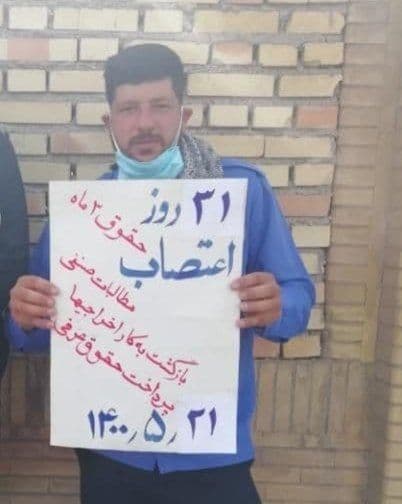 ۳۱ روز
اعتصاب
حقوق ۳ ماه
مطالبات صنفی
بازگشت به کار اخراجیها
پرداخت حقوق عرفی
۱۴۰۰٫۵٫۲۱